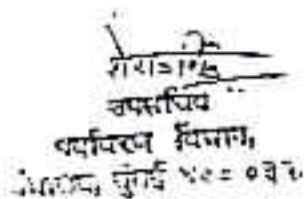 उपसचिव
पर्यावरण विभाग,
मंत्रालय, मुंबई ४०००३२.